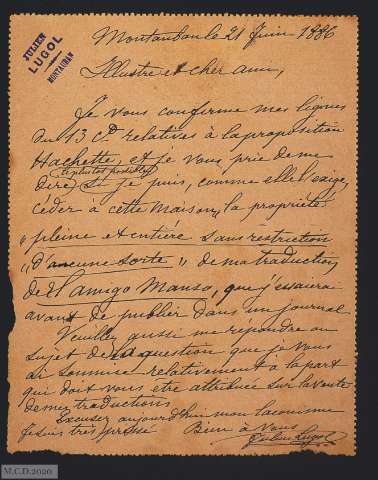 JULIEN
LUGOL
MONTAUBAN
Montauban le 21 Juin 1886
Illustre et cher ami,
Je vous confirme mes lignes
du 13 Ct. relatives à la proposition
Hachette, et je vous prie de me
dire (le plus tôt possible) si je puis, comme elle l'exige,
céder à cette Maison, la propriété
„pleine et entière sans restriction
„d'aucune sorte" de ma traduction
de El amigo Manso, que j'essaierai
avant de publier dans un journal.
Veuillez aussi me répondre au
sujet de la question que je vous
ai soumise relativement à la part
qui doit vous être attribuée sur la vente
de mes traductions.
Excusez aujourd'hui mon laconisme
Je suis très pressé Bien à vous
Julien Lugol
M.C.D.2020